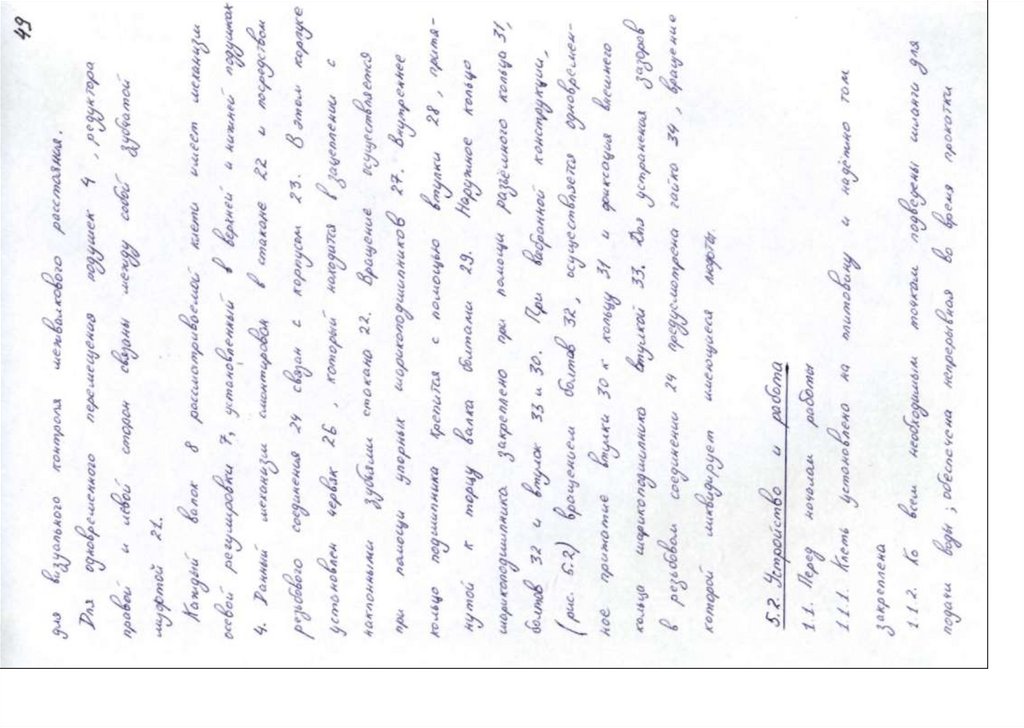 49
для визуального контроля межвалкового расстояния.
Для одновременного перемещения подушек 4, редуктора
правой и левой сторон связаны между собой зубчатой
муфтой 21.
Каждый валок 8 рассматриваемой клети имеет механизм
осевой регулировки 7, установленный в верней и нижней подушках
4. Данный механизм смонтирован в стакане 22 и посредством
резьбового соединения 24 связан с корпусом 23. В этом корпусе
установлен червяк 26, который находится в зацеплении с
наклонными зубьями стакана 22. Вращение осуществляется
при помощи упорных шарикоподшипников 27. Внутреннее
кольцо подшипника крепится с помощью втулки 28, притя-
нутой к торцу валка болтами 29. Наружное кольцо
шарикоподшипника закреплено при помощи разъёмного кольца 31,
болтов 32 и втулок 33 и 30. При выбранной конструкции,
(рис. 5.2) вращением болтов 32, осуществляется одновремен-
ное прижатие втулки 30 к кольцу 31 и фиксация внешнего
кольца шарикоподшипника втулкой 33. Для устранения зазоров
в резьбовом соединении 24 предусмотрена гайка 34, вращение
которой ликвидирует имеющиеся люфты.
5.2. Устройство и работа
1.1. Перед началом работы
1.1.1. Клеть установлена на плитовину и надёжно там
закреплена
1.1.2. Ко всем необходимым точкам подведены шланги для
подачи воды; обеспечена непрерывная во время прокатки